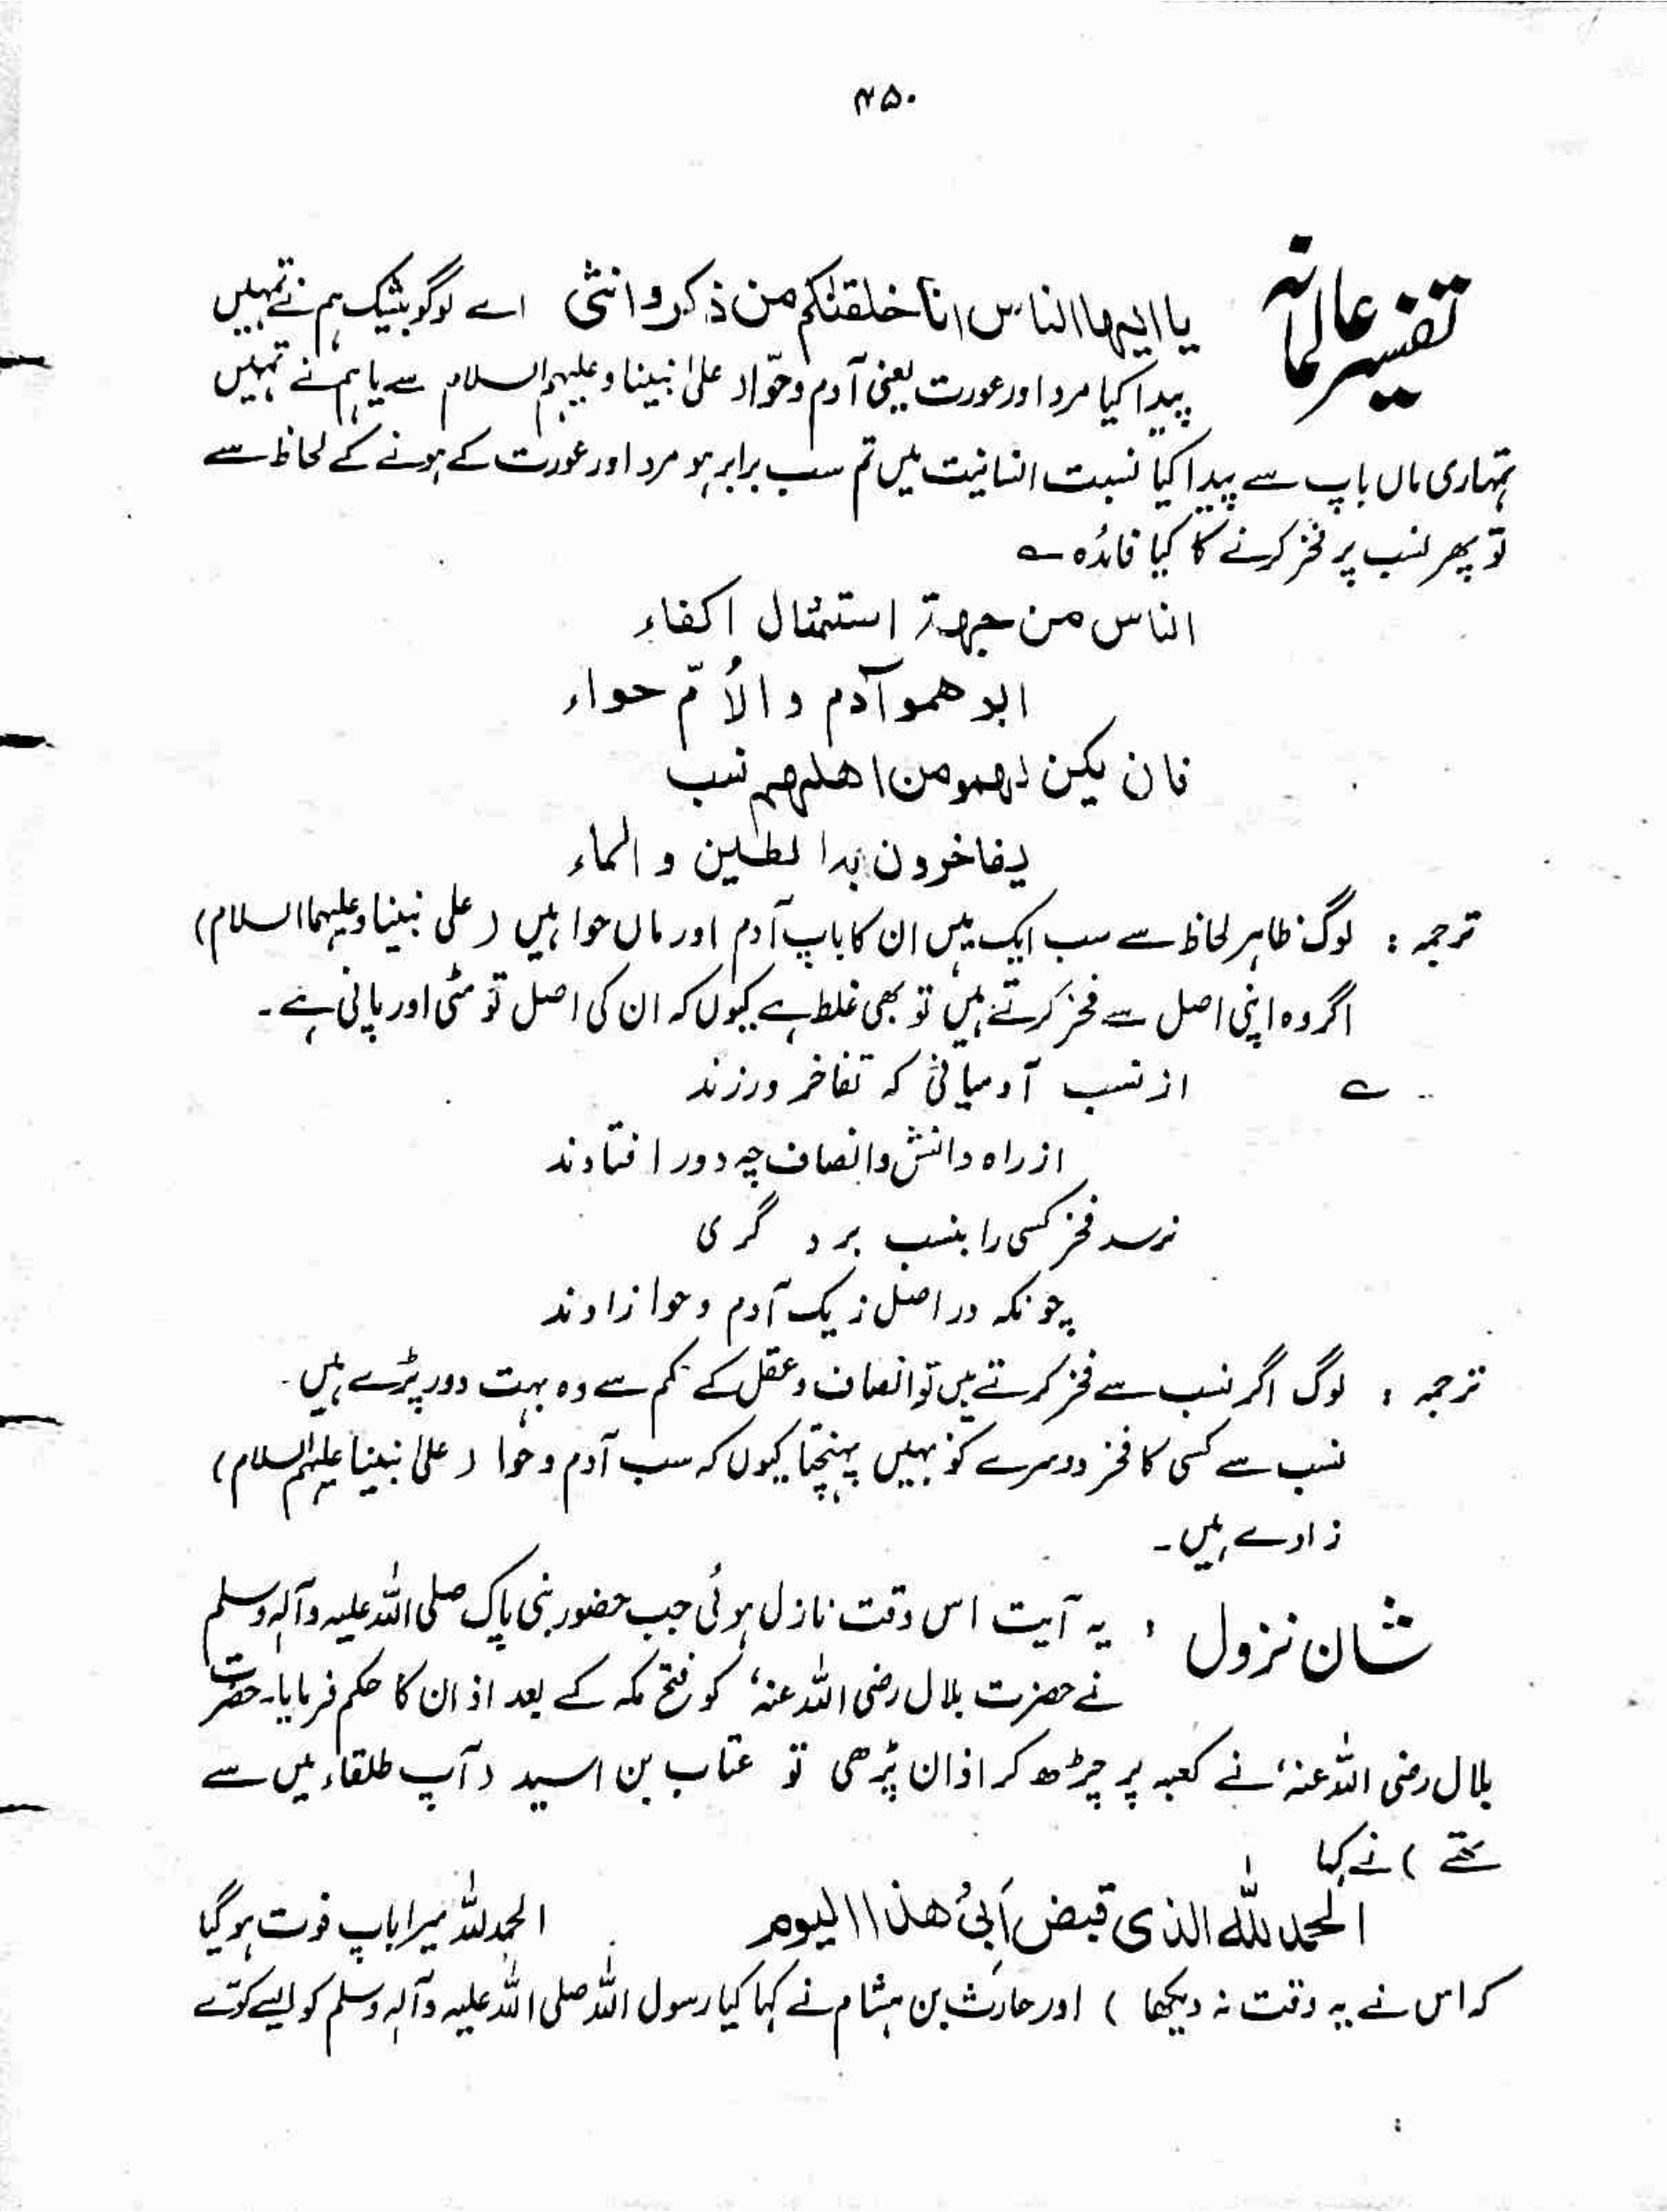 ۴۵۰
تفسیر عالمانہ
یا ایہا الناس انا خلقنٰکم من ذکر و انثٰی اے لوگو بیشک ہم نے تمہیں
پیدا کیا مرد اور عورت یعنی آدم و حوّاد علیٰ نبینا و علیہم السلام سے یا ہم نے تمہیں
تمہاری ماں باپ سے پیدا کیا نسبت انسانیت میں تم سب برابر ہو مرد اور عورت کے ہونے کے لحاظ سے
تو پھر نسب پر فخر کرنے کا کیا فائدہ ؎
الناس من جهة استمثال اکفاء
ابو همو آدم و الاُمّ حواء
فان یکن لهمو من اهلهم نسب
یفاخرون بدا لطین و الماء
ترجمہ : لوگ ظاہر لحاظ سے سب ایک ہیں ان کا باپ آدم اور ماں حوا ہیں (علی نبینا وعلیہما السلام)
اگر وہ اپنی اصل سے فخر کرتے ہیں تو بھی غلط ہے کیوں کہ ان کی اصل تو مٹی اور پانی ہے۔
؎ از نسب آدمیانی کہ تفاخر ورزند
از راہ دانش و انصاف چہ دور افتادند
نرسد فخر کسی را بنسب بر د گری
چونکہ در اصل ز یک آدم و حوا زادند
ترجمہ : لوگ اگر نسب سے فخر کرتے ہیں تو انصاف و عقل کے حکم سے وہ بہت دور پڑے ہیں۔
نسب سے کسی کا فخر دوسرے کو نہیں پہنچتا کیوں کہ سب آدم و حوا (علیٰ نبینا علیہم السلام)
زادے ہیں۔
شان نزول : یہ آیت اس وقت نازل ہوئی جب حضور نبی پاک صلی اللہ علیہ وآلہ وسلم
نے حضرت بلال رضی اللہ عنہ، کو فتح مکہ کے بعد اذان کا حکم فرمایا۔ حضرت
بلال رضی اللہ عنہ، نے کعبہ پر چڑھ کر اذان پڑھی تو عتاب بن اسید (آپ طلقاء میں سے
تھے) نے کہا
الحمد للّٰہ الذی قبض اَبیُ ھذا الیوم الحمد للّٰہ میرا باپ فوت ہو گیا
کہ اس نے یہ وقت نہ دیکھا) اور حارث بن ہشام نے کہا کیا رسول اللہ صلی اللہ علیہ وآلہ وسلم کو ایسے کوّے